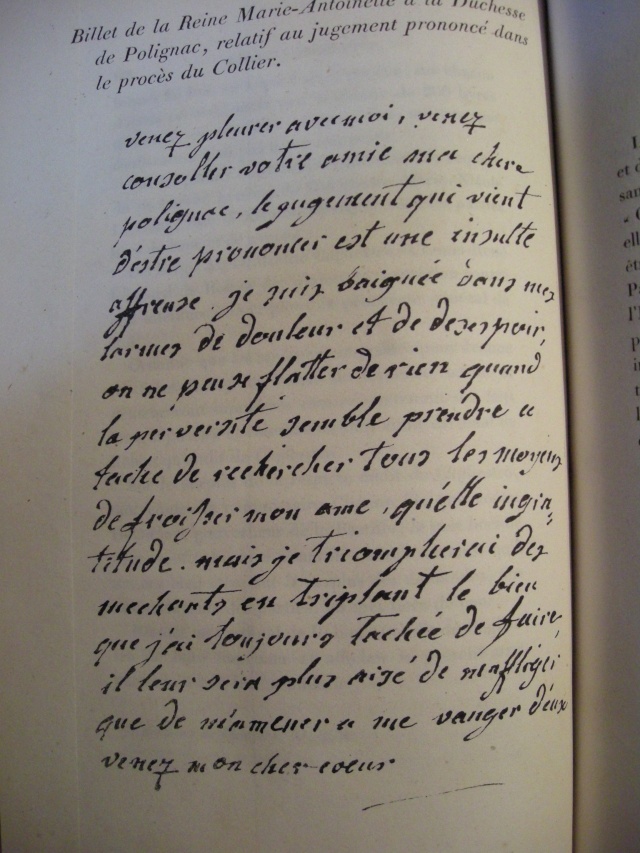 Billet de la Reine Marie-Antoinette à la Duchesse
de Polignac, relatif au jugement prononcé dans
le procès du Collier.
venez pleurer avec moi, venez
consoller votre amie ma chere
polignac, le gugement qui vient
d'estre prononcer est une insulte
affreuse. je suis baignée dans mes
larmes de douleur et de desespoir,
on ne peu se flatter de rien quand
la perversité semble prendre a
tache de rechercher tous les moyens
de froisser mon ame, quélle ingra,
titude. mais je triompherai des
mechants en triplant le bien
que j'ai toujours tachée de faire,
il leur sera plus aisé de m'affliger
que de m'amener a me vanger d'eux
venez mon cher coeur
et
san
ell